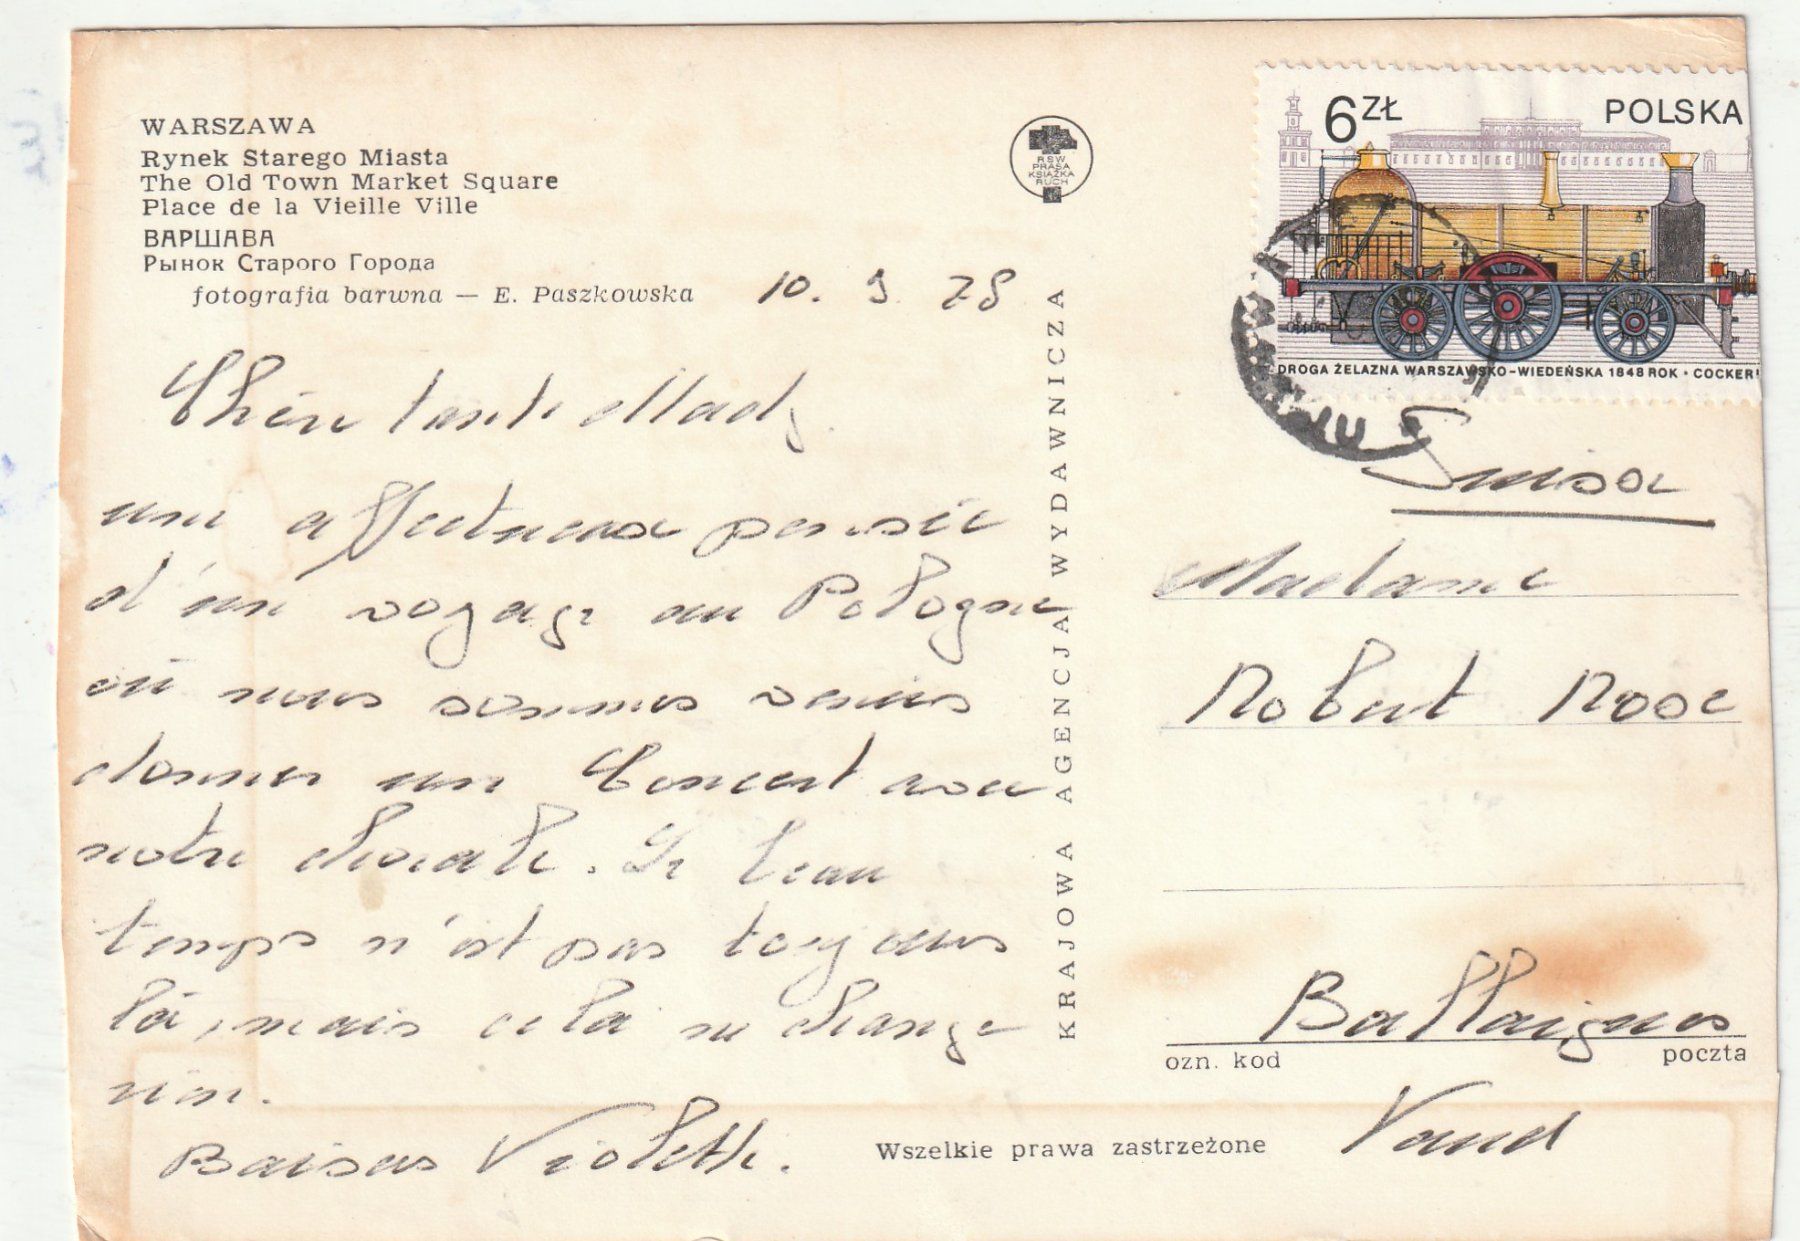 WARSZAWA
Rynek Starego Miasta
The Old Town Market Square
Place de la Vieille Ville
ВАРШАВА
Рынок Старого Города
fotografia barwna — E. Paszkowska
10. 9. 78
RSW
PRASA
KSIĄŻKA
RUCH
6 ZŁ
POLSKA
DROGA ŻELAZNA WARSZAWSKO-WIEDEŃSKA 1848 ROK • COCKERI
Chère tante Mady
une affectueuse pensée
d'un voyage en Pologne
où nous sommes venus
donner un Concert avec
notre chorale. Le beau
temps n'est pas toujours
là, mais cela ne change
rien.
Baisers Violette.
KRAJOWA AGENCJA WYDAWNICZA
Suisse
Madame
Robert
Ballaigues
ozn. kod
poczta
Vaud
Wszelkie prawa zastrzeżone